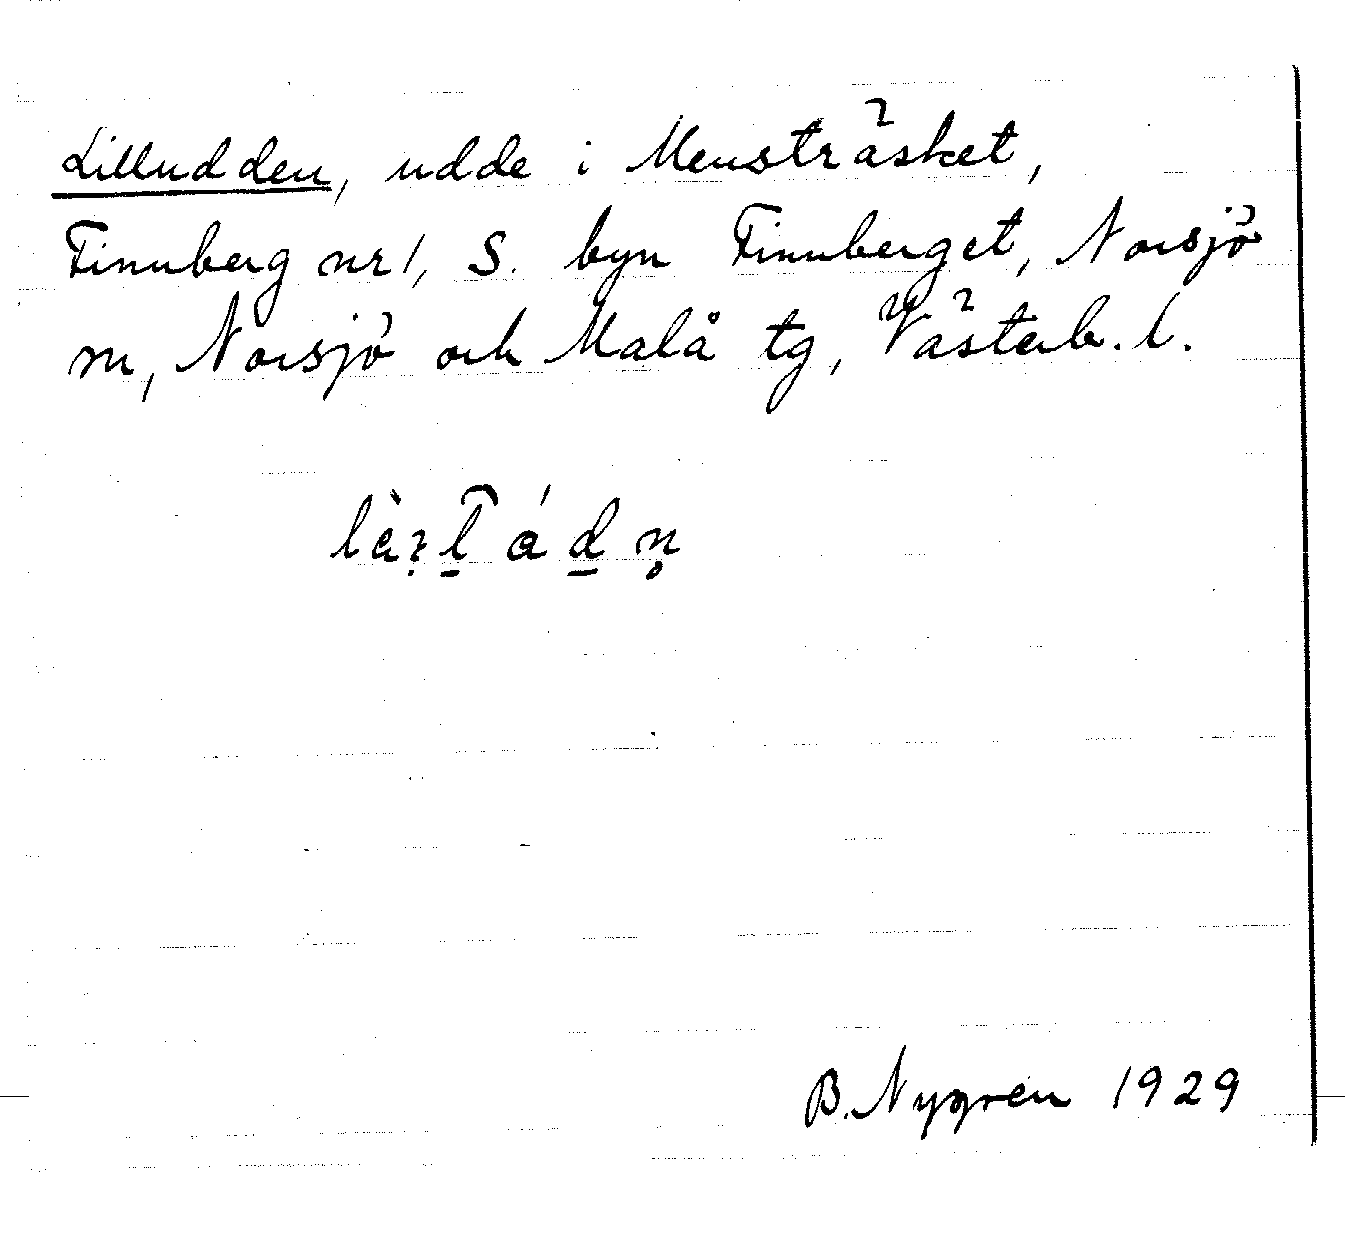 Lilludden, udde i Mensträsket,
Finnberg nr 1, S. byn Finnberget, Norsjö
sn, Norsjö och Malå tg, Västerb. l.
B. Nygren 1929